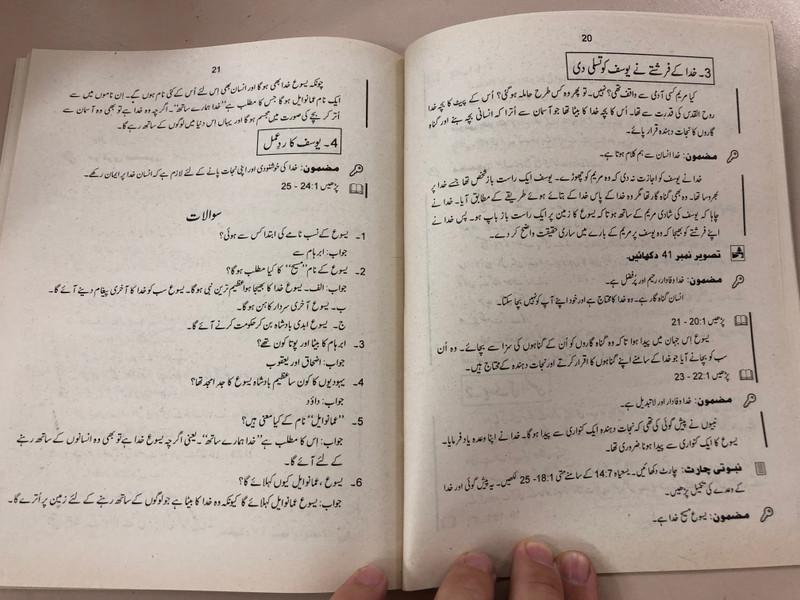 20
3۔ خدا کے فرشتے نے یوسف کو تسلی دی
کیا مریم کسی آدمی سے واقف تھی؟ نہیں۔ تو پھر وہ کس طرح حاملہ ہو گئی؟ اُس کے پیٹ کا بچہ خدا
روح القدس کی قدرت سے تھا۔ اُس کا بچہ خدا کا بیٹا تھا جو آسمان سے اُترا کہ انسانی بچہ بنے اور گناہ
گاروں کا نجات دہندہ قرار پائے۔
مضمون: خدا انسان سے ہم کلام ہوتا ہے۔
خدا نے یوسف کو اجازت نہ دی کہ وہ مریم کو چھوڑے۔ یوسف ایک راست باز شخص تھا جسے خدا پر
بھروسا تھا۔ وہ بھی گناہ گار تھا مگر وہ خدا کے پاس خدا کے بتائے ہوئے طریقے کے مطابق آیا۔ خدا نے
چاہا کہ یوسف کی شادی مریم کے ساتھ ہو تاکہ یسوع کا زمین پر ایک راست باز باپ ہو۔ پس خدا نے
اپنے فرشتے کو بھیجا کہ وہ یوسف پر مریم کے بارے میں ساری حقیقت واضح کر دے۔
تصویر نمبر 41 دکھائیں۔
مضمون: خدا وفادار، رحیم اور پُرفضل ہے۔
انسان گناہ گار ہے۔ وہ خدا کا محتاج ہے اور خود اپنے آپ کو نہیں بچا سکتا۔
پڑھیں 20:1 - 21
یسوع اِس جہان میں پیدا ہوا تاکہ وہ گناہ گاروں کو اُن کے گناہوں کی سزا سے بچائے۔ وہ اُن
سب کو بچانے آیا جو خدا کے سامنے اپنے گناہوں کا اقرار کرتے اور نجات دہندہ کے محتاج ہیں۔
پڑھیں 22:1 - 23
مضمون: خدا وفادار اور لاتبدیل ہے۔
نبیوں نے پیش گوئی کی تھی کہ نجات دہندہ ایک کنواری سے پیدا ہو گا۔ خدا نے اپنا وعدہ یاد فرمایا۔
یسوع کا ایک کنواری سے پیدا ہونا ضروری تھا۔
نبوتی چارٹ: چارٹ دکھائیں۔ یسعیاہ 14:7 کے سامنے متی 18:1- 25 لکھیں۔ یہ پیش گوئی اور خدا
کے وعدے کی تکمیل پڑھیں۔
مضمون: یسوع مسیح خدا ہے۔
21
چونکہ یسوع خدا بھی ہو گا اور انسان بھی اِس لئے اُس کے کئی نام ہوں گے۔ اِن ناموں میں سے
ایک نام عمانوایل ہو گا جس کا مطلب ہے "خدا ہمارے ساتھ"۔ اگرچہ وہ خدا ہے تو بھی وہ آسمان سے
اُتر کر بچے کی صورت میں مجسم ہو گا اور یہاں اِس دنیا میں لوگوں کے ساتھ رہے گا۔
4۔ یوسف کا ردعمل
مضمون: خدا کی خوشنودی اور اپنی نجات پانے کے لئے لازم ہے کہ انسان خدا پر ایمان رکھے۔
پڑھیں 24:1 - 25
سوالات
1۔ یسوع کے نسب نامے کی ابتدا کس سے ہوئی؟
جواب: ابرہام سے
2۔ یسوع کے نام "مسیح" کا کیا مطلب ہو گا؟
جواب: الف۔ یسوع خدا کا بھیجا ہوا عظیم ترین نبی ہو گا۔ یسوع سب کو خدا کا آخری پیغام دینے آئے گا۔
ب۔ یسوع آخری سردار کاہن ہو گا۔
ج۔ یسوع ابدی بادشاہ بن کر حکومت کرنے آئے گا۔
3۔ ابرہام کا بیٹا اور پوتا کون تھے؟
جواب: اضحاق اور یعقوب
4۔ یہودیوں کا کون سا عظیم بادشاہ یسوع کا جد امجد تھا؟
جواب: داؤد
5۔ "عمانوایل" نام کے کیا معنی ہیں؟
جواب: اِس کا مطلب ہے "خدا ہمارے ساتھ"۔ یعنی اگرچہ یسوع خدا ہے تو بھی وہ انسانوں کے ساتھ رہنے
کے لئے آئے گا۔
6۔ یسوع، عمانوایل کیوں کہلائے گا؟
جواب: یسوع عمانوایل کہلائے گا کیونکہ وہ خدا کا بیٹا ہے جو لوگوں کے ساتھ رہنے کے لئے زمین پر اُترے گا۔